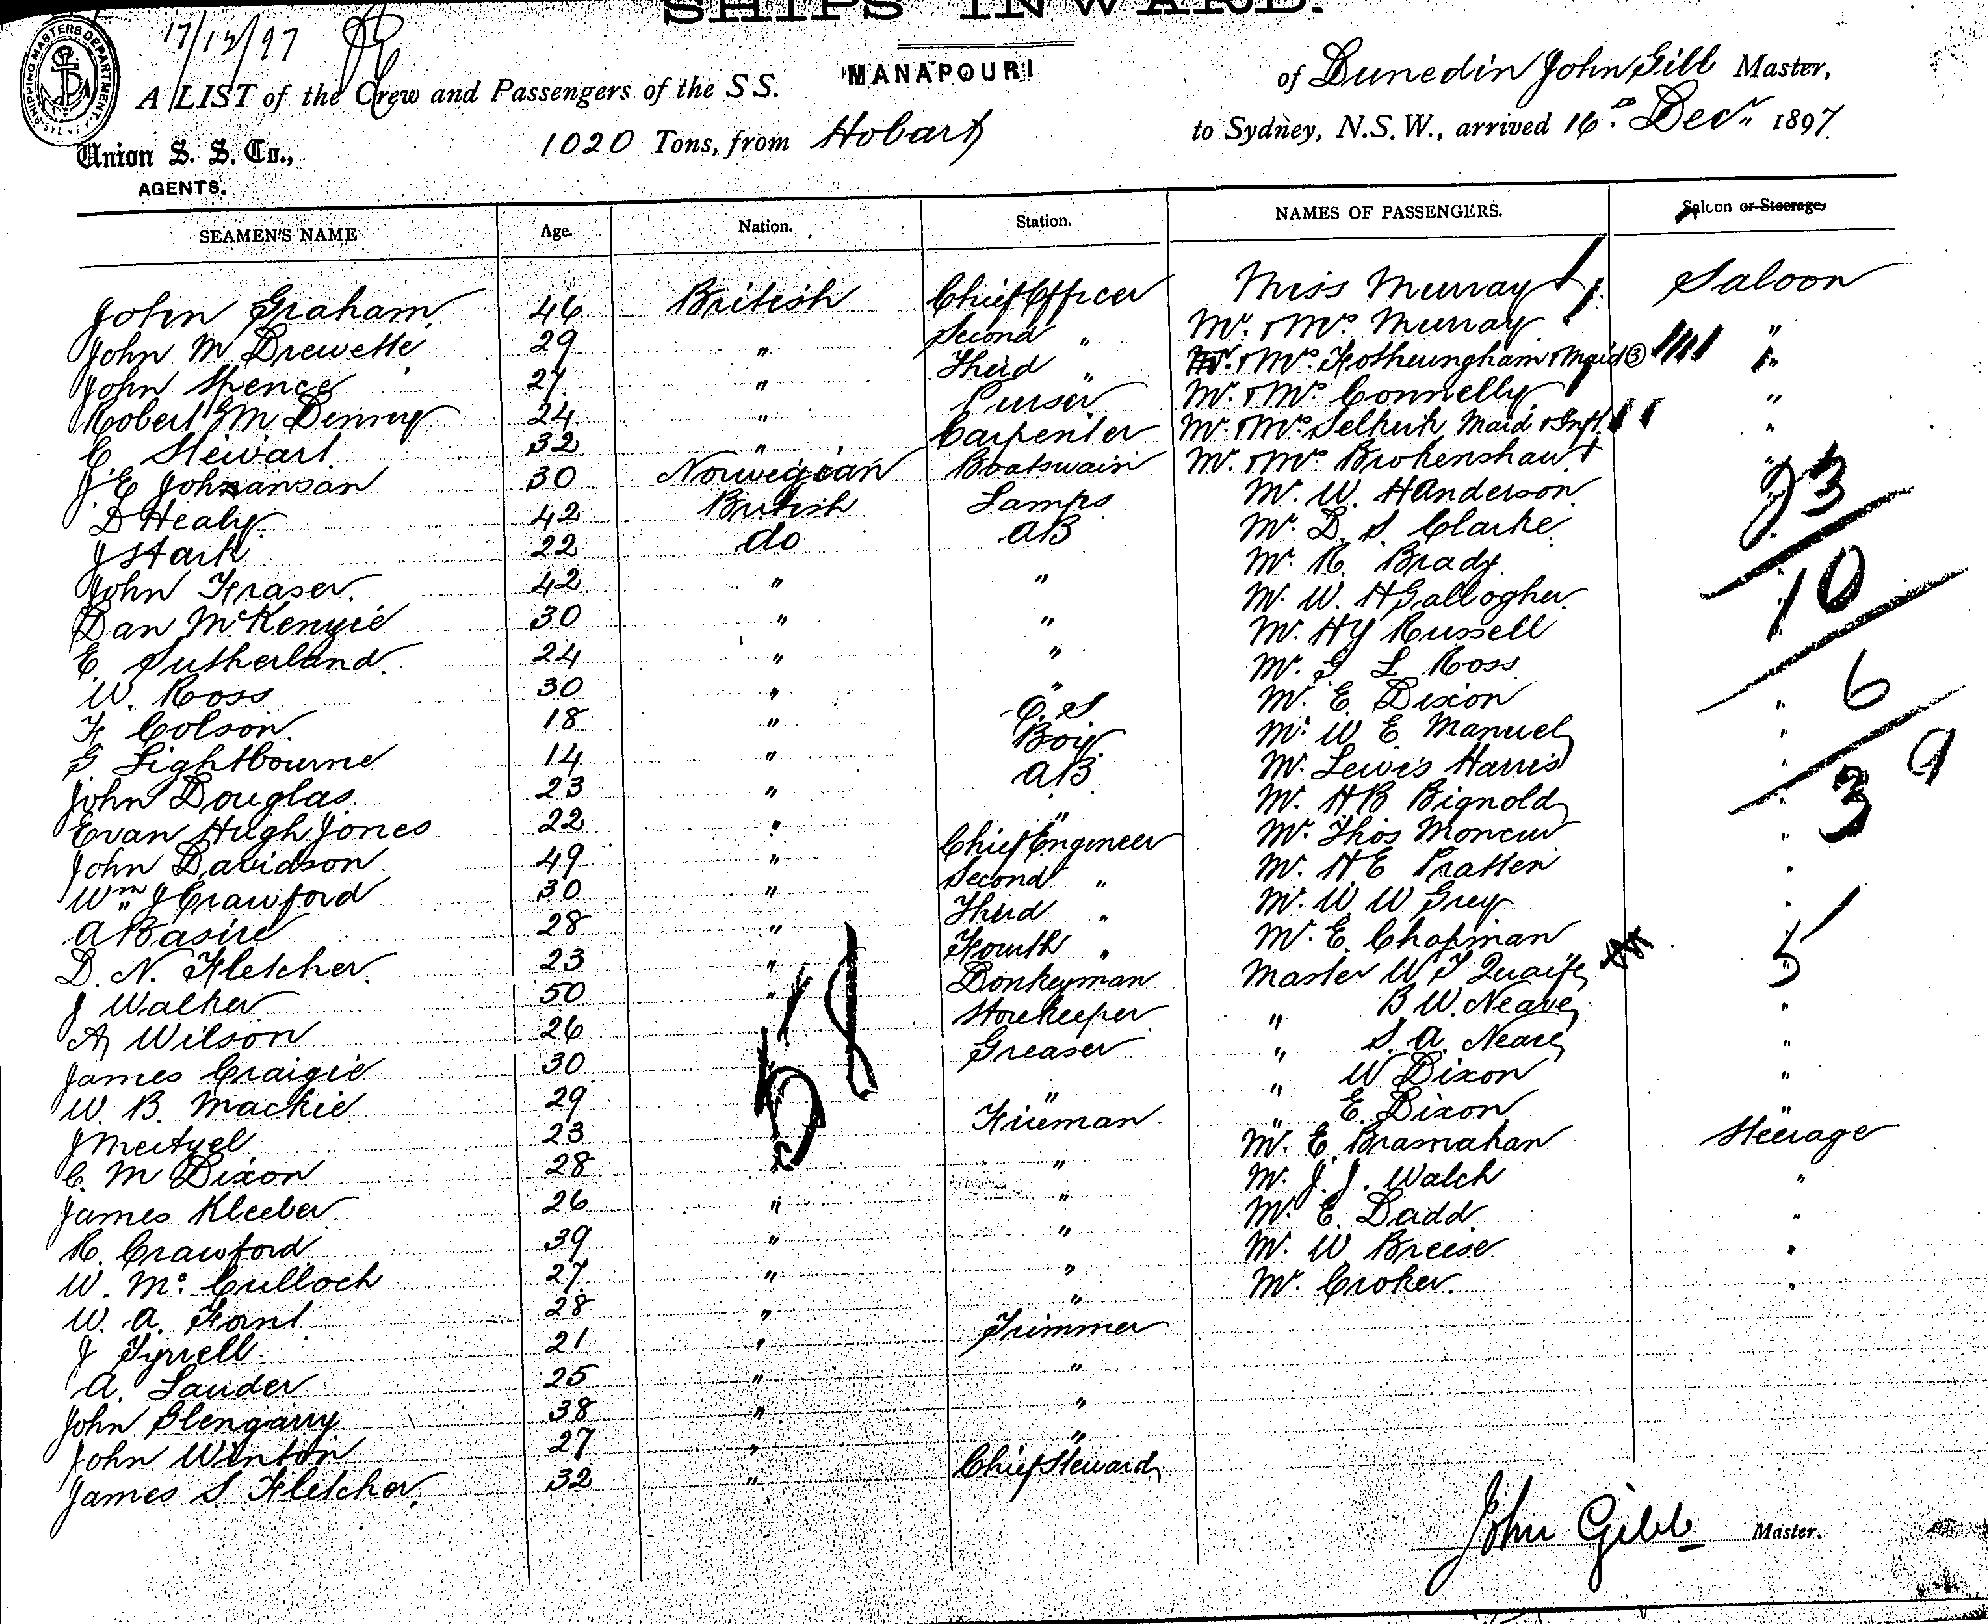 SHIPS INWARD.
17/12/97
SHIPPING MASTERS DEPARTMENT
A LIST of the Crew and Passengers of the S S. MANAPOURI of Dunedin John Gibb Master,
Union S. S. Co., 1020 Tons, from Hobart to Sydney, N.S.W., arrived 16th Decr 1897
AGENTS.
SEAMEN'S NAME Age. Nation. Station. NAMES OF PASSENGERS. Saloon or Steerage.
John Graham 46 British Chief Officer Miss Murray Saloon
John M Drewette 29 " Second " Mr. & Mrs Murray "
John Spence 27 " Third " Mr. & Mrs Fotheringham & Maid 3 "
Robert G M Denny 24 " Purser Mr. & Mrs Connelly "
C Stewart 32 " Carpenter Mr. & Mrs Selkirk Maid & Inft "
J E Johnansan 30 Norwegian Boatswain Mr. & Mrs Brokenshaw "
D Healy 42 British Lamps Mr. W. H Anderson 23
J Stark 22 do AB Mr. D. S. Clarke
John Fraser 42 " " Mr. R. Brady 10
Dan McKenzie 30 " " Mr. W. H Gallogher
E. Sutherland 24 " " Mr. H Y Russell
W. Ross 30 " " Mr. G L Ross 6
F Colson 18 " O.S. Mr. E. Dixon "
G Lightbourne 14 " Boy Mr. W E Manuel "
John Douglas 23 " AB Mr. Lewis Harris 9
Evan Hugh Jones 22 " " Mr. H B Bignold 3
John Davidson 49 " Chief Engineer Mr. Thos Moncur "
Wm J Crawford 30 " Second " Mr. H E Pratten "
A Basire 28 " Third " Mr. W W Grey "
D. N. Fletcher 23 " Fourth " Mr. E. Chapman
J Walker 50 " Donkeyman Master W T Quaife 5
A Wilson 26 Storekeeper " B W. Neave "
James Craigie 30 Greaser " S. A. Neave "
W. B. Mackie 29 " " W Dixon "
J Meitzel 23 Fireman " E. Dixon "
C. M Dixon 28 " Mr. E. Bramahan Steerage
James Kleeber 26 " " Mr. J. J. Walch "
R. Crawford 39 " " Mr. E. Dadd "
W. Mc Culloch 27 " " Mr. W Breese "
W. A. Fant 28 " " Mr. Croker "
J Tyrrell 21 " Trimmer
A. Lauder 25 " "
John Glengarry 38 " "
John Winton 27 " "
James S Fletcher 32 " Chief Steward
58
John Gibb Master.